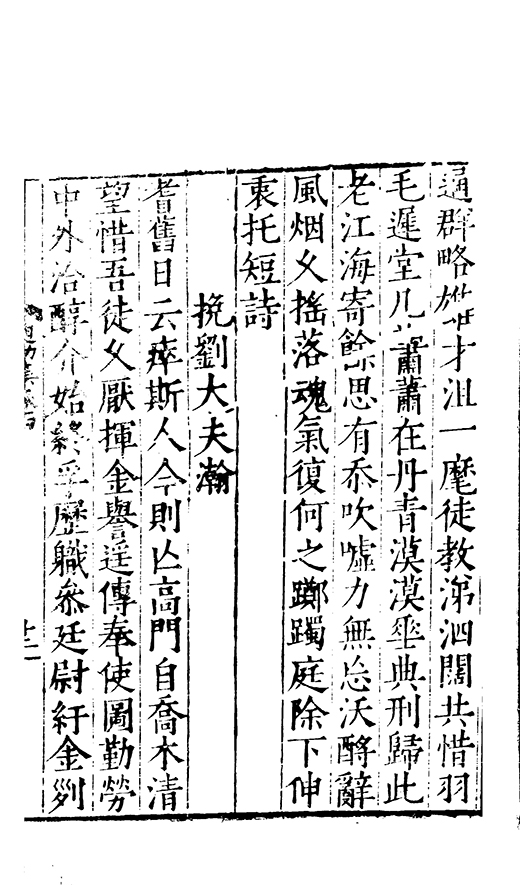 通群略雄才沮一麾徒教涕泗闊共惜羽
毛遲堂几蕭蕭在丹青漠漠垂典刑歸此
老江海寄餘思有忝吹噓力無忘沃酹辭
風烟久搖落魂氣復何之躑躅庭除下伸
衷托短詩
挽劉大夫瀚
耆舊日云瘁斯人今則亾高門自喬木清
望惜吾徒久厭揮金譽逞傳奉使圖勤勞
中外洽醇介始終孚歷職叅廷尉紆金列
十二